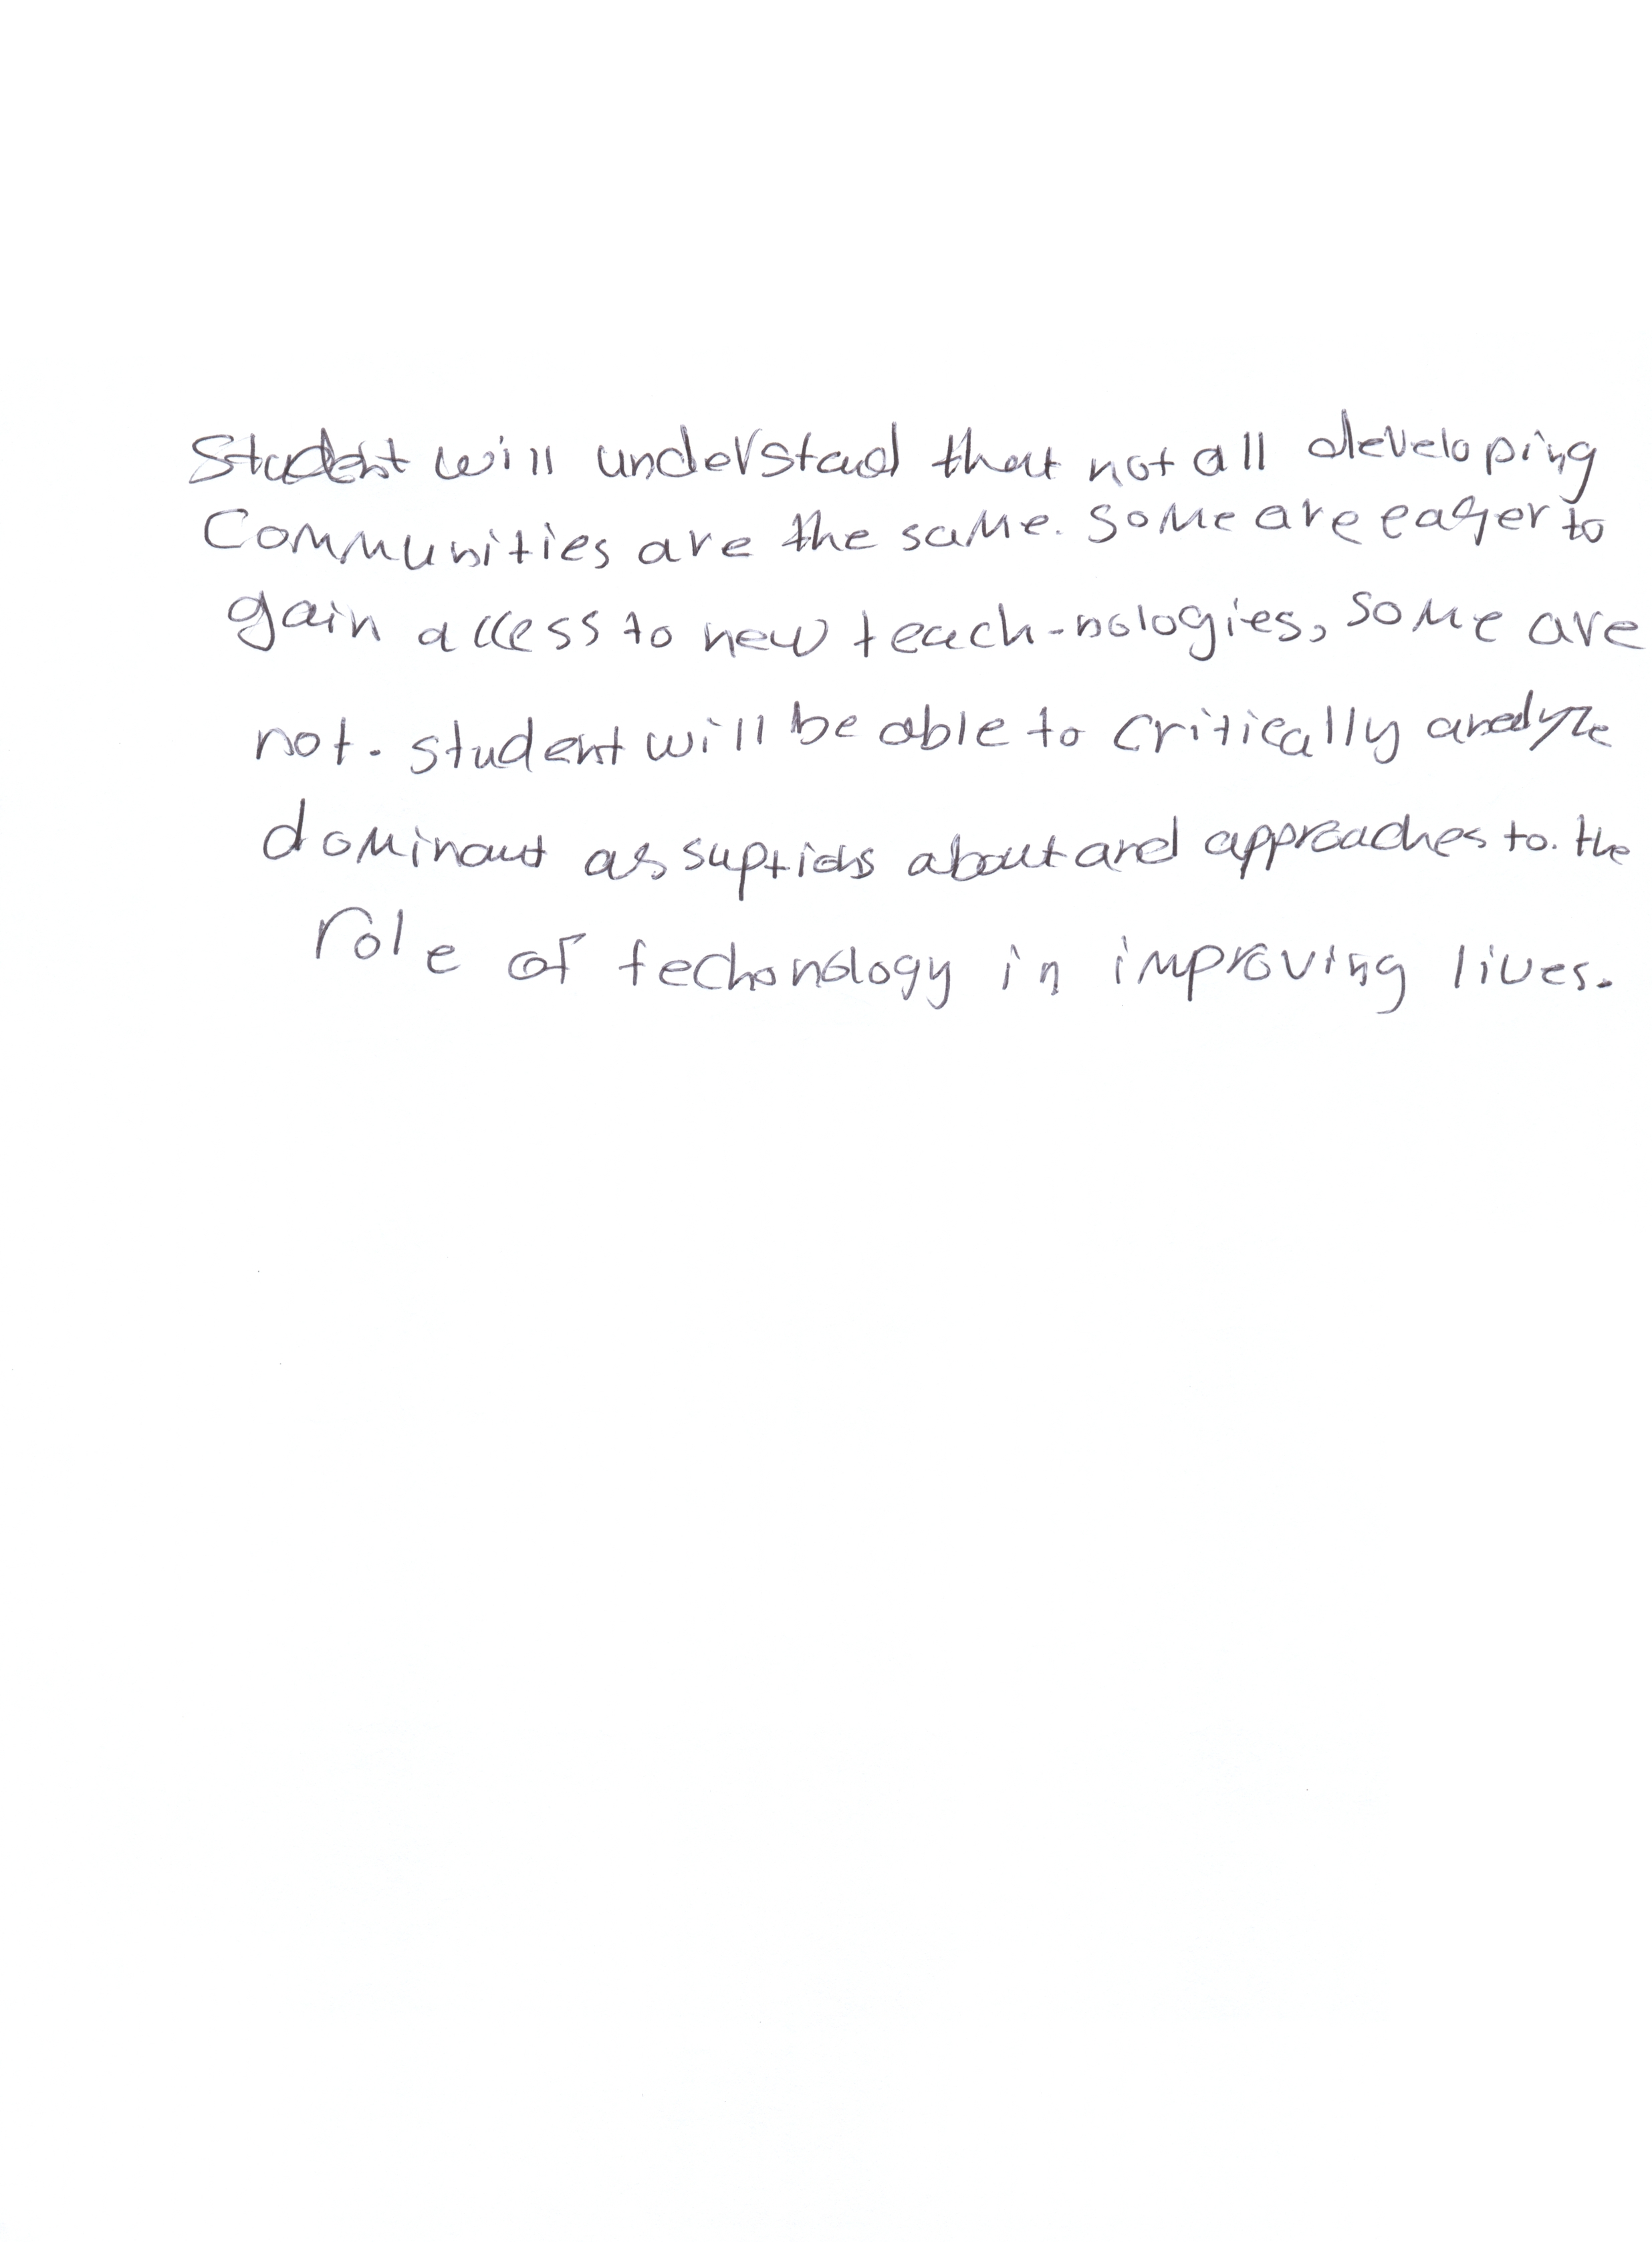 Student will understand that not all developing
Communities are the same. Some are eager to
gain access to new teach-nologies, some are
not. student will be able to critically analyze
dominant assuptions about and approaches to. the
role of techonology in improving lives.